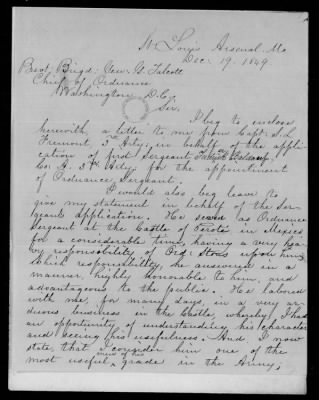 St Louis Arsenal Mo
Dec. 19. 1849.
Brevt. Brigd. Gen. G. Talcott
Chief of Ordnance
Washington D.C.
Sir,
I beg to enclose
herewith, a letter to me from Capt. S. L.
Fremont, 3d Arty. in behalf of the appli-
cation of first Sergeant
Co. 3d Arty. for the appointment
of Ordnance Sergeant.
I would also beg leave to
give my statement in behalf of the Ser-
geants application. He served as Ordnance
Sergeant at the Castle of Perote in Mexico
for a considerable time, having a very hea-
vy responsibility of Ord: Stores upon him,
which responsibility, he answered in a
manner, highly honorable to him, and
advantageous to the public. He labored
with me, for many days, in a very ar-
duous business in the Castle, whereby, I had
an opportunity of understanding his character
and seeing his usefulness. And, I now
state, that I consider him one of the
most useful men of his grade in the Army;